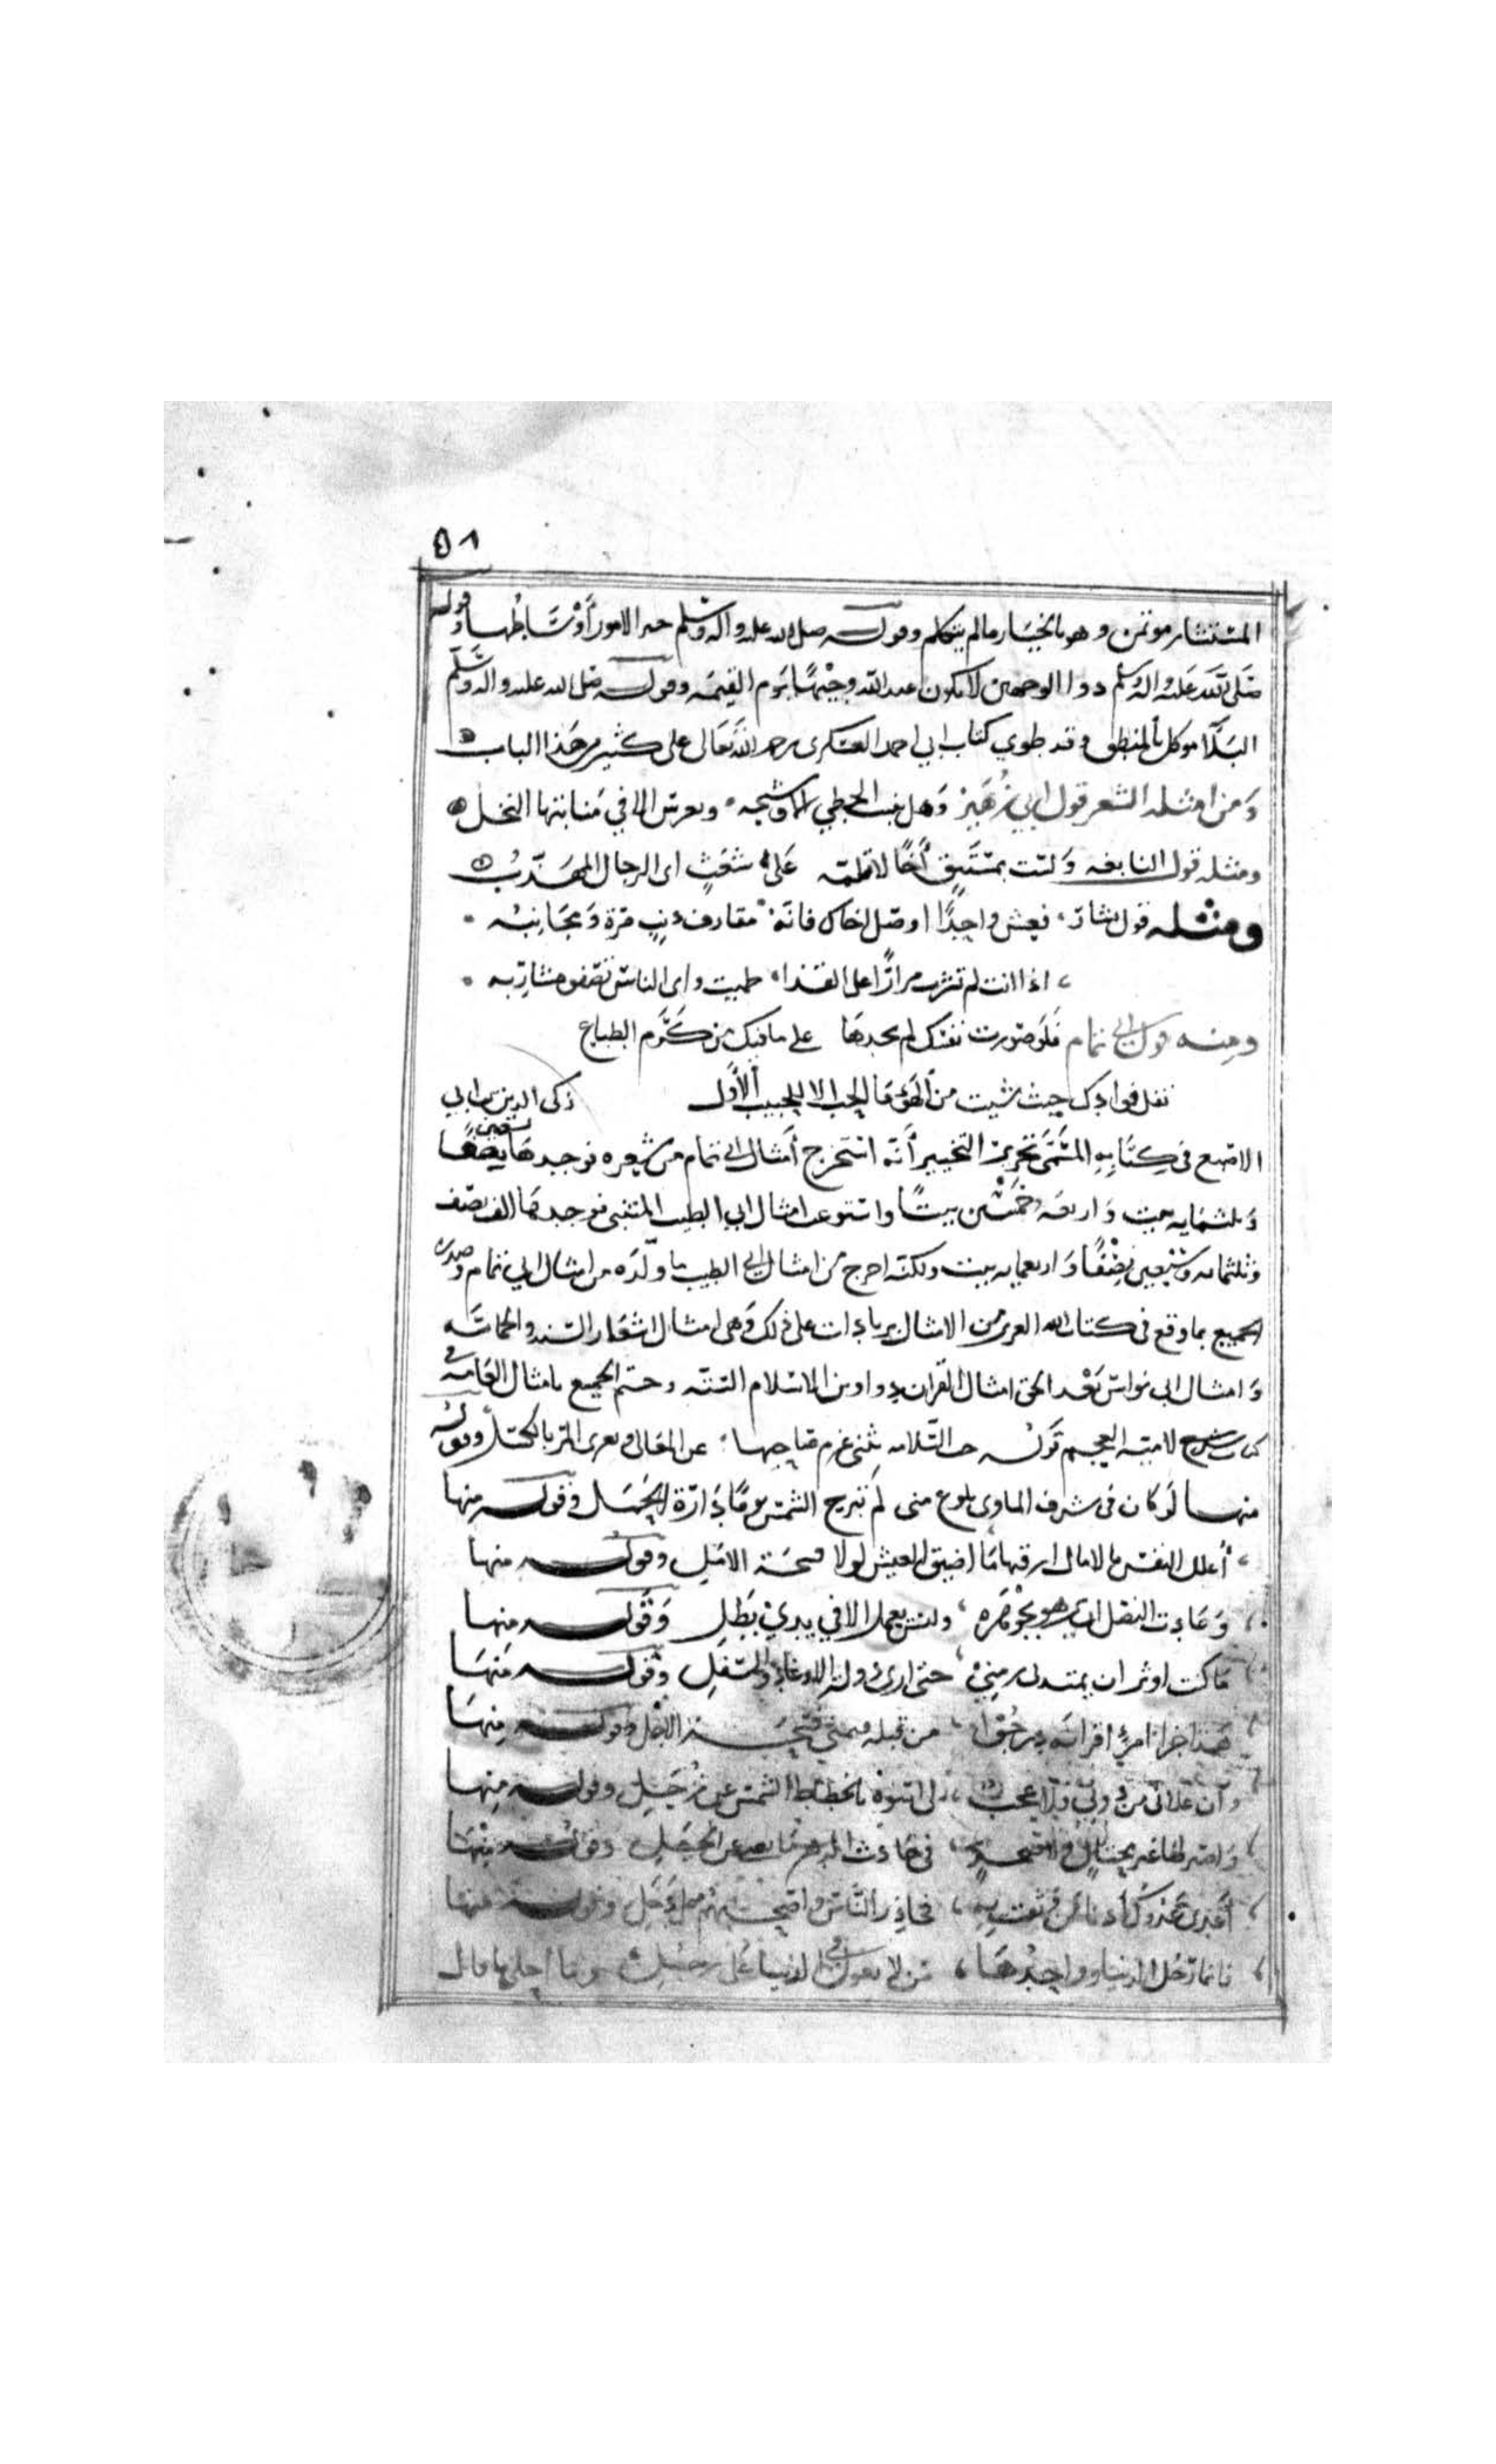 ٥٨
المستشار موتمن وهو بالخيار ما لم يتكلم وقوله صلى الله عليه واله وسلم خير الامور أوساطها وقوله
صلى الله عليه واله وسلم ذوا الوجهين لا يكون عند الله وجيها يوم القيمه وقوله صلى الله عليه واله وسلم
البلا موكل بالمنطق وقد طوي كتاب ابي احمد العسكرى رحمه الله تعالى على كثير من هذا الباب
ومن امثله الشعر قول ابي زهير وهل ينبت الخطي الا وشيجه وبغرس الا في منابتها النخل
ومثله قول النابغه ولست بمستبق أخا لا تلمه على شعث اى الرجال المهذب
ومثله قول بشار فعش واحدا او صل اخاك فانه مقارف ذنب مرة ومجانبه
اذا انت لم تشرب مرارا على القذا ظميت واى الناس تصفو مشاربه
ومنه قول ابي تمام فلو صورت نفسك لم تجدها على ما فيك من كرم الطباع
نقل فوادك حيث شيت من الهوى ما الحب الا للحبيب الأول زكى الدين بن ابي
الاصبع فى كتابه المسمى بتحرير التحبير أنه استخرج أمثال ابي تمام من شعره فوجدها تسعين نصفا
وثلثمايه بيت واربعه وخمسين بيتا واستوعب امثال ابي الطيب المتنبي فوجدها الف نصف
وثلثمائه وسبعين نصفا واربعمايه بيت ولكنه اخرج من امثال ابي الطيب ما ولده من امثال ابي تمام وصدر
الجميع بما وقع فى كتاب الله العزيز من الامثال بزيادات على ذلك وهى امثال اشعار السته والحماسه
وامثال ابى نواس بعد الحق امثال القران دواوين الاسلام السته وختم الجميع بامثال العامه وفى
كتاب شرح لامية العجم قوله حب السلامه يثنى عزم صاحبها عن المعالى ويغرى المر بالكسل وقوله
منها لو كان فى شرف الماوى بلوغ منى لم تبرح الشمس يوما دارة الحمل وقوله منها
أعلل النفس بالامال ارقبها ما اضيق العيش لولا فسحة الامل وقوله منها
وعادت النصل ان يزهو بجوهره وليس يعمل الا في يدي بطل وقوله منها
ما كنت اوثر ان يمتد بى زمني حتى ارى دولة الاوغاد والسفل وقوله منها
هذا جزا امرئ اقرانه درجوا من قبله فتمنى فسحة الاجل وقوله منها
وان علانى من دونى فلا عجب لى اسوة بانحطاط الشمس عن زحل وقوله منها
واصبر لها غير محتال ولا ضجر فى حادث الدهر ما يغنى عن الحيل وقوله منها
أعدى عدوك أدنا من وثقت به فحاذر الناس واصحبهم على دخل وقوله منها
فانما رجل الدنيا وواحدها من لا يعول فى الدنيا على رجل وما احلى ما قال